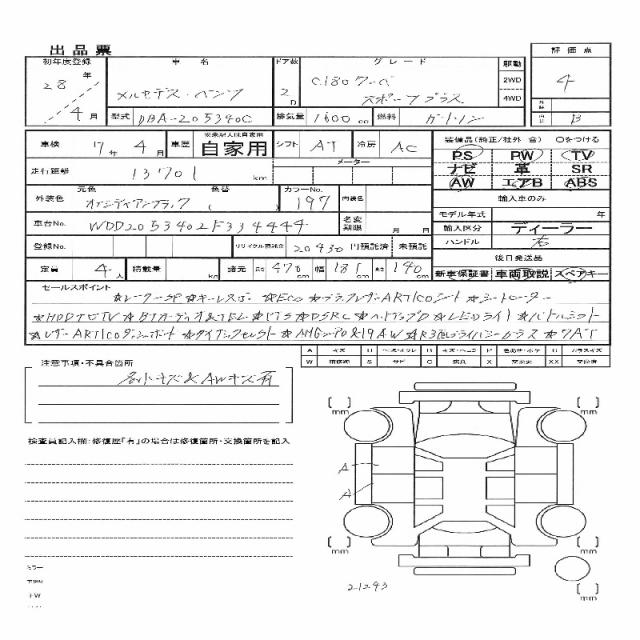 出品票
初年度登録 車名 ドア数 グレード 駆動 評価点
28年 メルセデス・ベンツ 2D C180クーペ 2WD 4
4月 スポーツプラス 4WD
型式 DBA-205340C 排気量 1600cc 燃料 ガソリン B
車検 17年4月 車歴 自家用 シフト AT 冷房 AC 装備品(純正/社外含) ○をつける
走行距離 13701km メーター PS PW TV
ナビ 革 SR
元色 色替 カラーNo. AW エアB ABS
外装色 オブシディアンブラック ( ) 197 内装色 輸入車のみ
車台No. WDD2053402F334444 名変期限 月 日 モデル年式 年
輸入区分 ディーラー
登録No. リサイクル預託金 20430円預託済 未預託 ハンドル 右
後日発送品
定員 4人 積載量 kg 諸元 長さ470 幅181 高さ140 新車保証書 車両取説 スペアキー
セールスポイント
★レーダーSP ★キーレスゴー ★Eco ★ブラックレザーARTICOシート ★シートヒーター
★HDDナビTV ★BTオーディオ&TEL ★PTS ★DSRC ★LEDライト ★パドルシフト
★レザーARTICOダッシュボード ★ダイナミックセレクト ★AMGエアロ&19AW ★R3色プライバシーガラス ★7AT
注意事項・不具合箇所
名小キズ&AWキズ有
検査員記入欄:修復歴『有』の場合は修復箇所・交換箇所を記入
mm
mm
A
A
mm
mm
ミラー
21293
mm